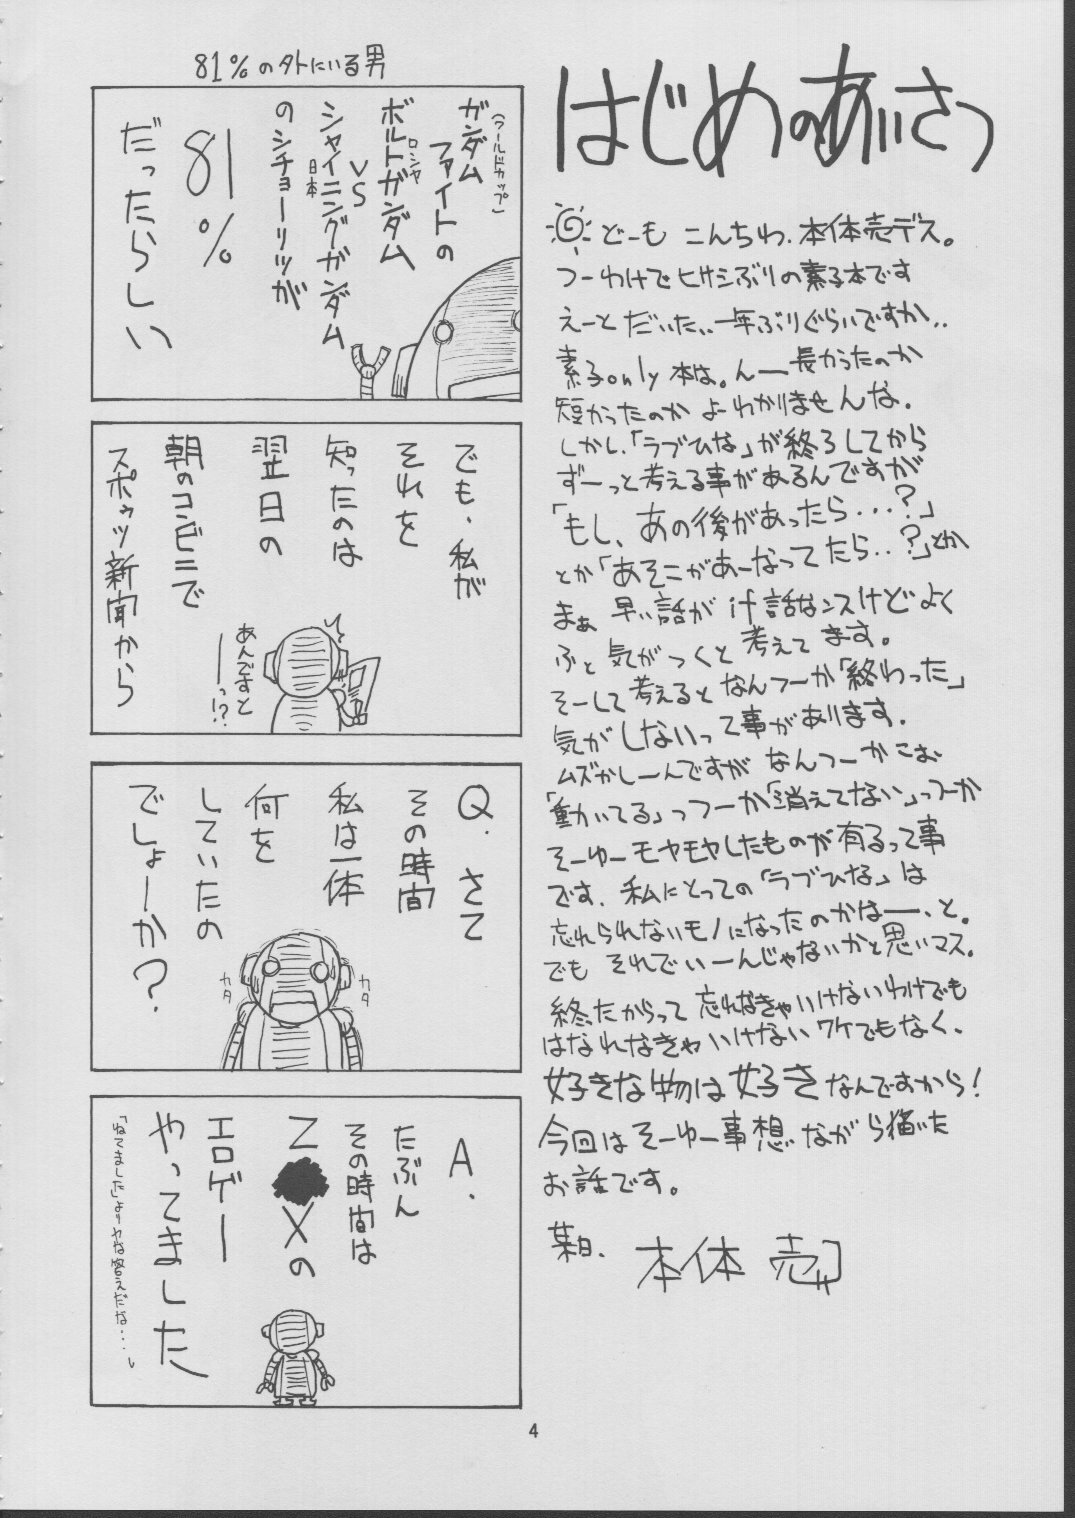 はじめのあいさつ
どーも こんちわ、本体売デス。
つーわけでヒサシぶりの素子本です
えーと だいた、、一年ぶりぐらいですか、、
素子only本は。んー長かったのか
短かったのか よーわかりませんな。
しかし、「ラブひな」が終ろしてから
ずーっと考える事があるんですが
「もし、あの後があったら・・・?」
とか「あそこがあーなってたら・・?」とか
まぁ 早い話が if話なンスけど よく
ふと 気がつくと 考えてます。
そーして考えると なんつーか「終わった」
気がしないって事があります。
ムズかしーんですが なんつーか こぉ
「動いてる」っつーか「消えてない」っつーか
そーゆーモヤモヤしたものが有るって事
です。私にとっての「ラブひな」は
忘れられないモノになったのかなーーと。
でも それでいーんじゃないかと思いマス。
終ったがらって 忘れなきゃいけないわけでも
はなれなきゃいけないワケでもなく、
好きな物は好きなんですから!
今回はそーゆー事想いながら描いた
お話です。
某日、 本体 売
81%の外にいる男
(ワールドカップ)
ガンダム
ファイトの
ロシヤ
ボルトガンダム
VS
日本
シャイニングガンダム
のシチョーリツが
81%
だったらしい
でも、私が
それを
知ったのは
翌日の
朝のコンビニで
スポゥツ新聞から
あんですと
ーーっ!?
Q. さて
その時間
私は一体
何を
していたの
でしょーか?
カタ
カタ
A.
たぶん
その時間は
Z●Xの
エロゲー
やってました
「ねてました」よりヤな答えだな・・・い
4